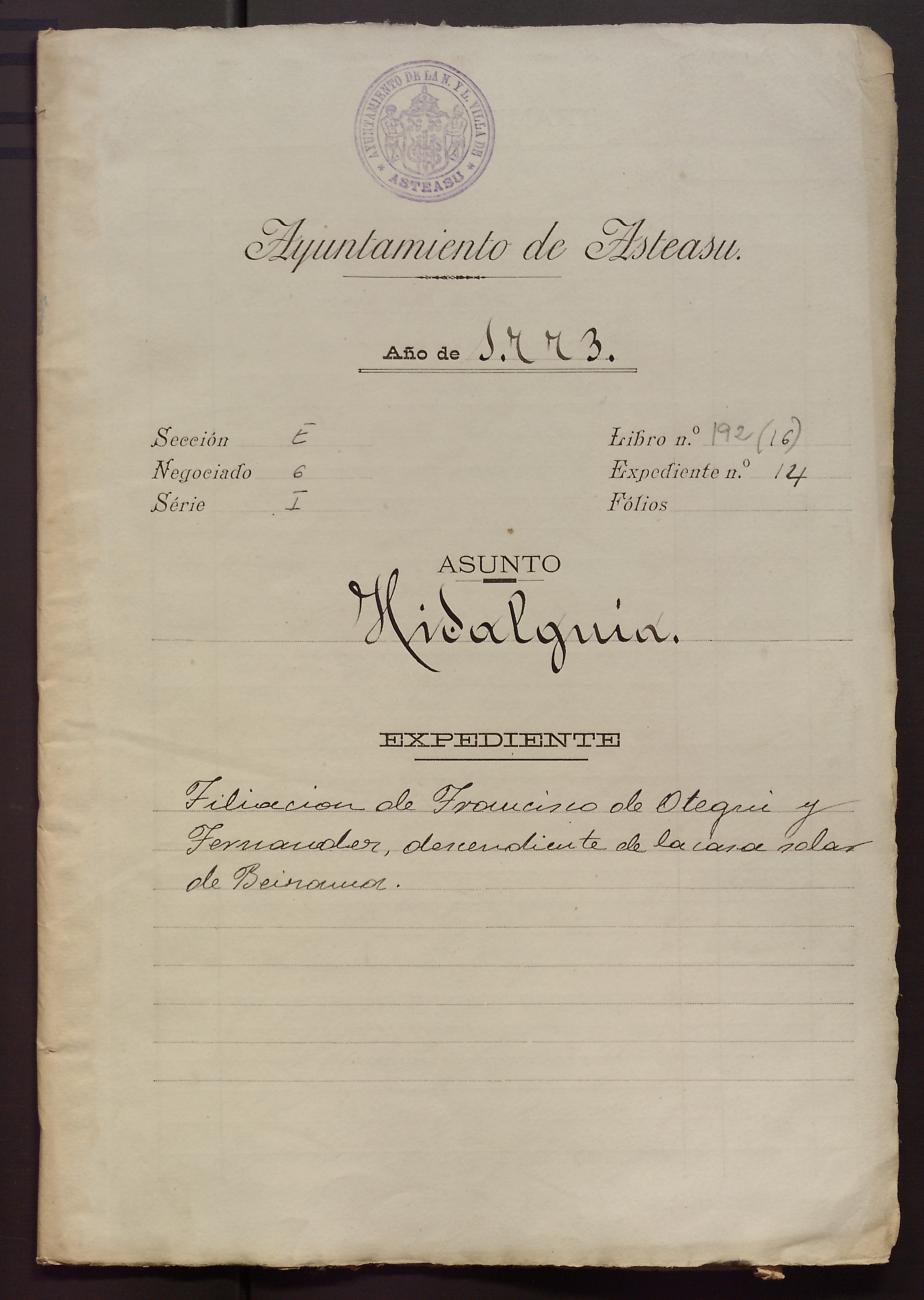 AYUNTAMIENTO DE LA N. Y L. VILLA DE
* ASTEASU *
Ayuntamiento de Asteasu.
Año de 1.773.
Sección E
Negociado 6
Série I
Libro n.º 192 (16)
Expediente n.º 14
Fólios
ASUNTO
Hidalguia.
EXPEDIENTE
Filiacion de Francisco de Otegui y
Fernandez, descendiente de la casa solar
de Beirama.